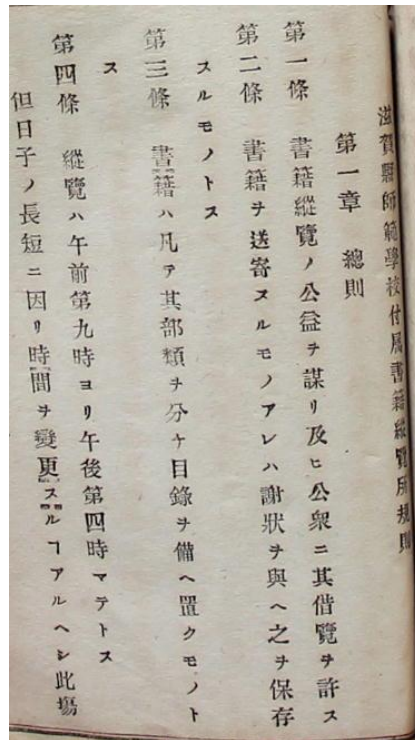 滋賀縣師範學校付属書籍縱覽所規則
第一章 總則
第一條 書籍縱覽ノ公益ヲ謀リ及ヒ公衆ニ其借覽ヲ許ス
第二條 書籍ヲ送寄スルモノアレハ謝狀ヲ與ヘ之ヲ保存
スルモノトス
第三條 書籍ハ凡テ其部類ヲ分ケ目錄ヲ備ヘ置クモノト
ス
第四條 縱覽ハ午前第九時ヨリ午後第四時マテトス
但日子ノ長短ニ因リ時間ヲ變更スルヿアルヘシ此塲